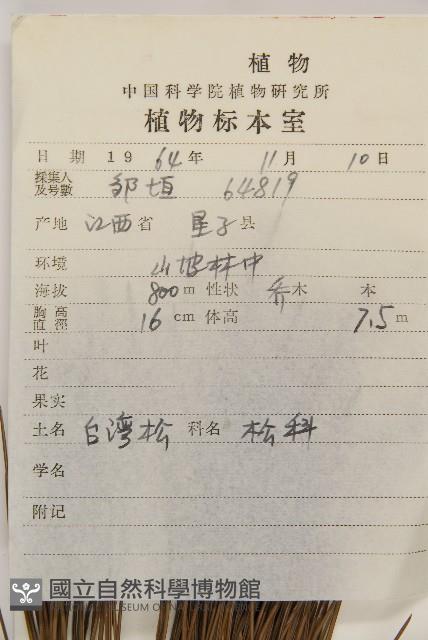 植物
中国科学院植物研究所
植物标本室
日期 19 64 年 11 月 10 日
採集人及号數 邹垣 64819
产地 江西 省 星子 县
环境 山坡林中
海拔 800 m 性状 乔木 本
胸高直徑 16 cm 体高 7.5 m
叶
花
果实
土名 台湾松 科名 松科
学名
附记
國立自然科學博物館